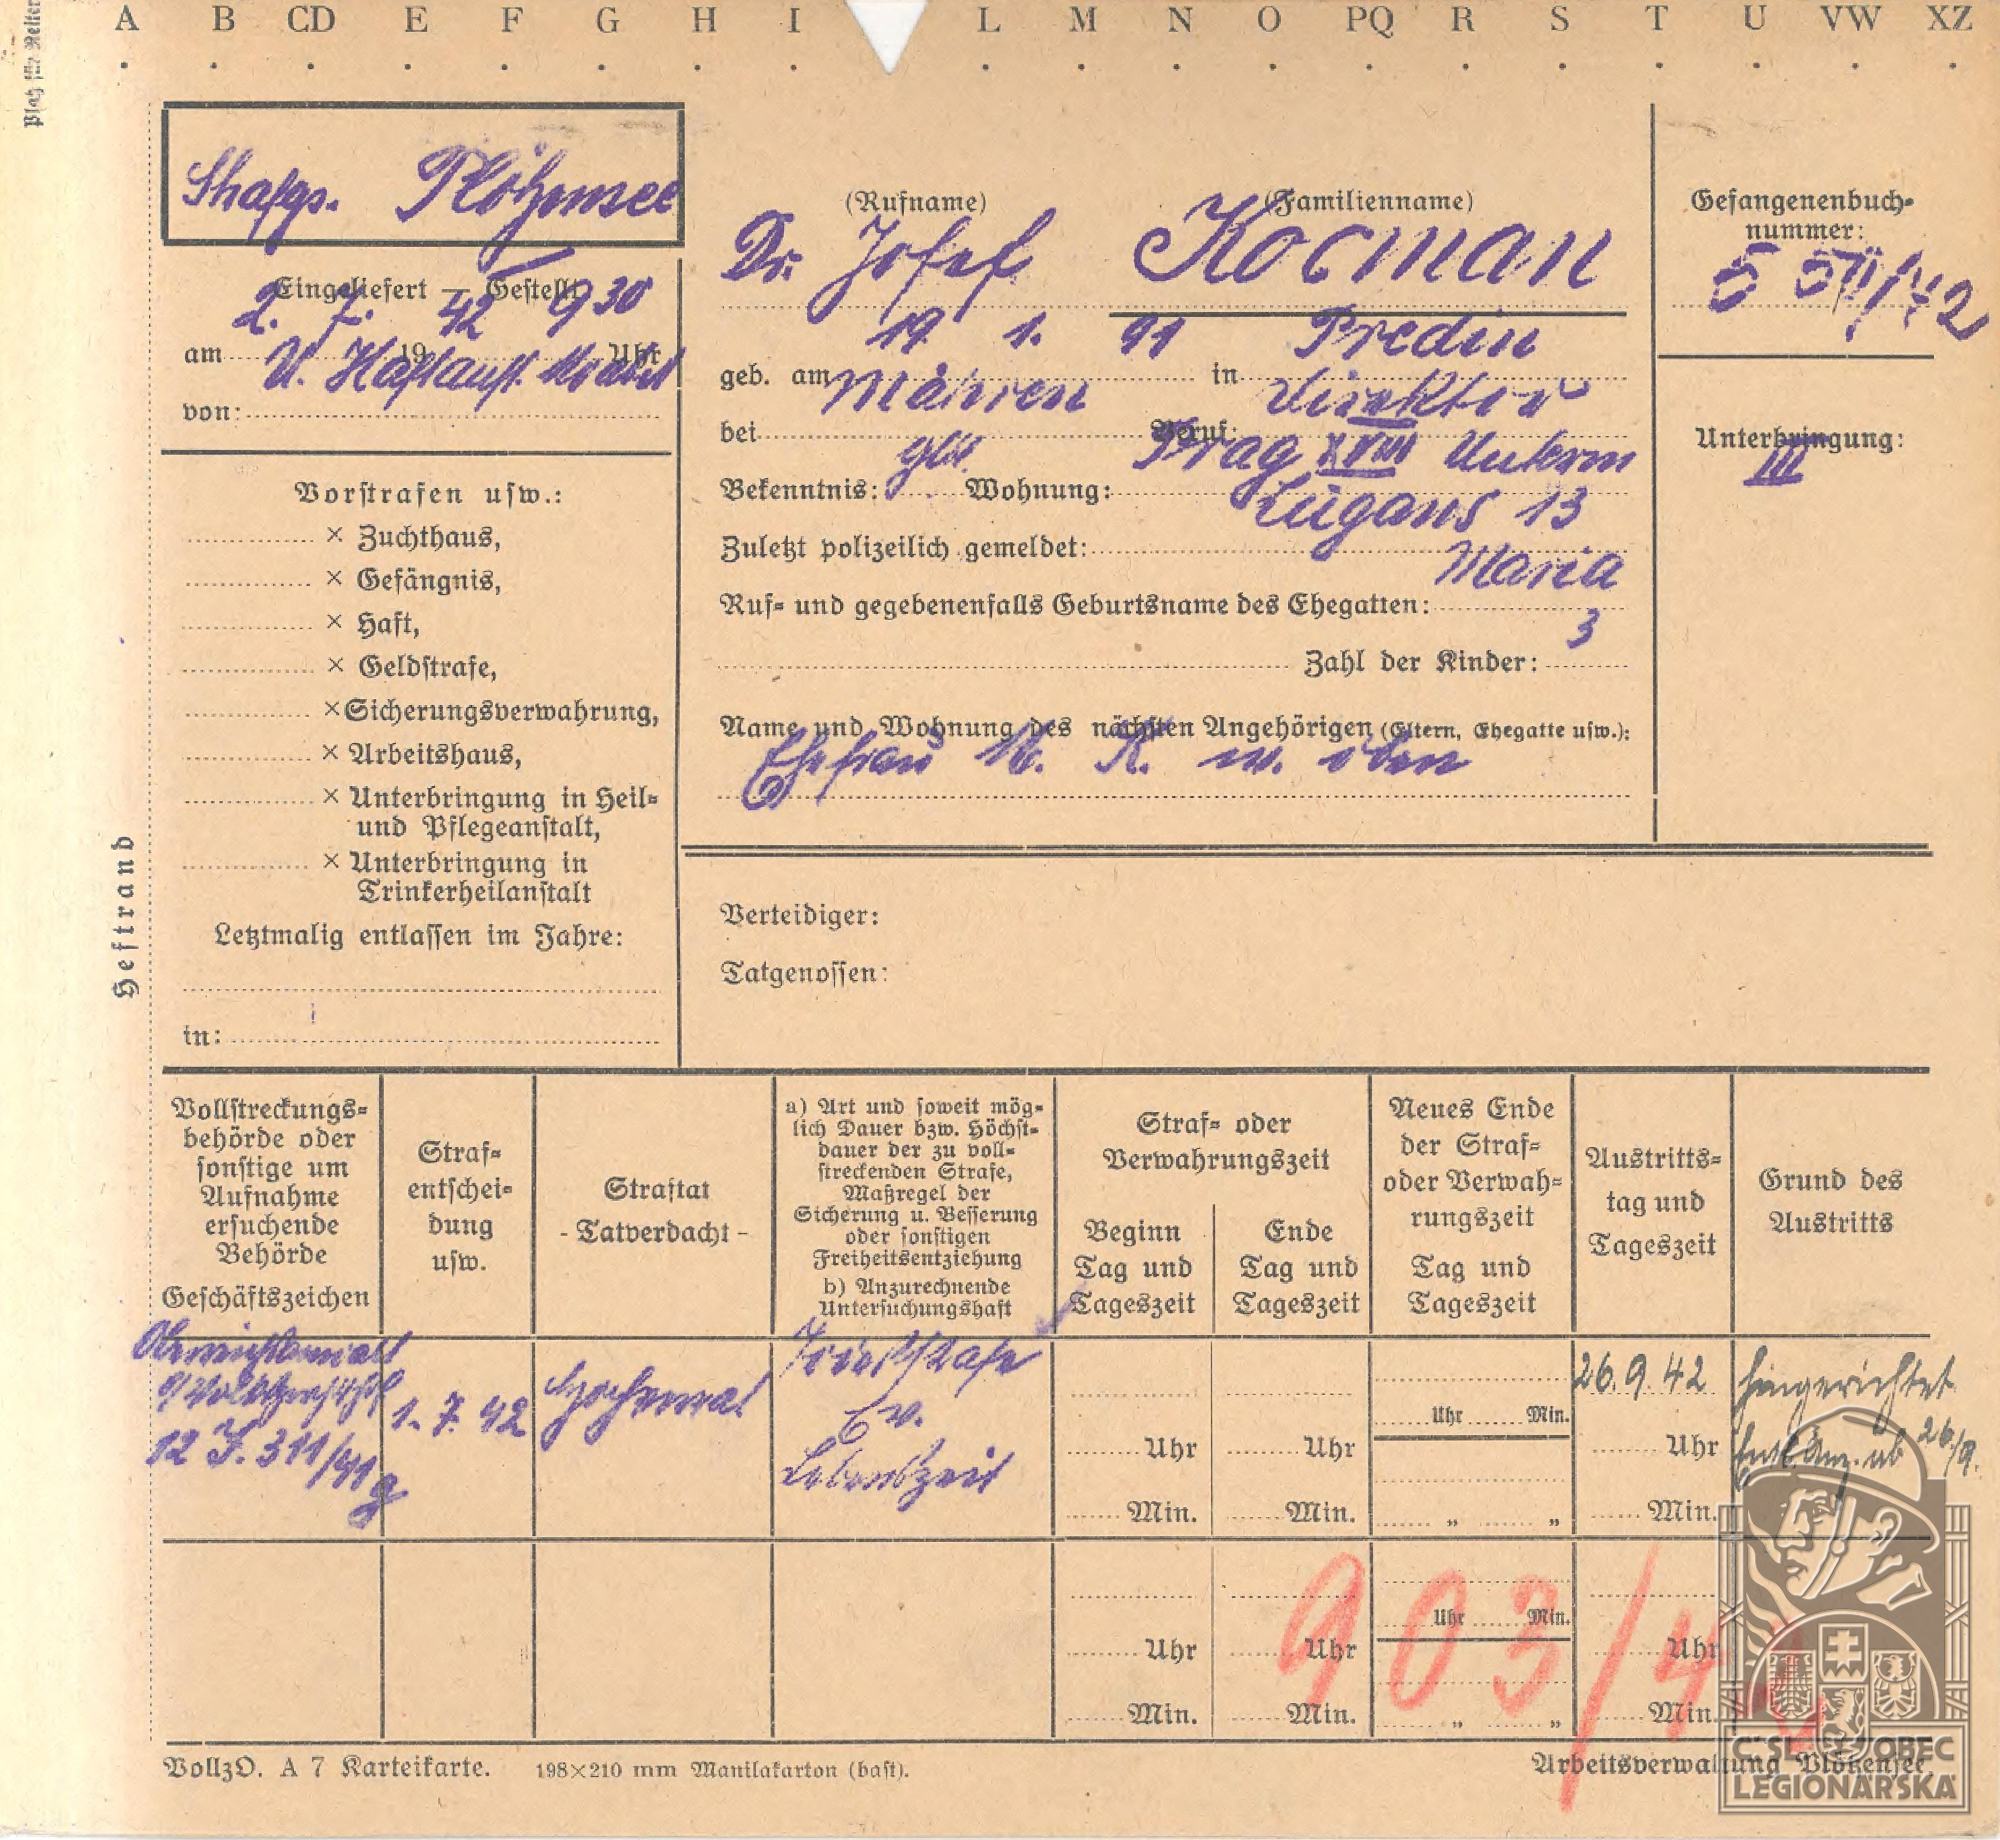 A B CD E F G H I L M N O PQ R S T U VW XZ
Platz für Reiter
Heftrand
Strafgs. Plötzensee
Eingeliefert — Gestellt
2. 7. 42 9 30
am 19 Uhr
U. Haftanst. Moabit
von:
Vorstrafen usw.:
× Zuchthaus,
× Gefängnis,
× Haft,
× Geldstrafe,
× Sicherungsverwahrung,
× Arbeitshaus,
× Unterbringung in Heil-
und Pflegeanstalt,
× Unterbringung in
Trinkerheilanstalt
Letztmalig entlassen im Jahre:
in:
(Rufname) (Familienname)
Dr. Josef Kocman
19. 1. 91 Predin
geb. am in
Mähren Direktor
bei Beruf:
Prag XVIII
Bekenntnis: Wohnung:
13
Zuletzt polizeilich gemeldet:
Maria
Ruf- und gegebenenfalls Geburtsname des Ehegatten:
3
Zahl der Kinder:
Name und Wohnung des nächsten Angehörigen (Eltern, Ehegatte usw.):
Ehefrau M. K. w. oben
Gefangenenbuch-
nummer:
Unterbringung:
III
Verteidiger:
Tatgenossen:
Vollstreckungs-
behörde oder
sonstige um
Aufnahme
ersuchende
Behörde
Geschäftszeichen
Straf-
entschei-
dung
usw.
Straftat
- Tatverdacht -
a) Art und soweit mög-
lich Dauer bzw. Höchst-
dauer der zu voll-
streckenden Strafe,
Maßregel der
Sicherung u. Besserung
oder sonstigen
Freiheitsentziehung
b) Anzurechnende
Untersuchungshaft
Straf- oder
Verwahrungszeit
Beginn
Tag und
Tageszeit
Ende
Tag und
Tageszeit
Neues Ende
der Straf-
oder Verwah-
rungszeit
Tag und
Tageszeit
Austritts-
tag und
Tageszeit
Grund des
Austritts
Oberreichsanwalt
12 J. 311/41g
1. 7. 42
Hochverrat
Todesstrafe
Ev.
Lebenszeit
26. 9. 42
hingerichtet
ab 26/9.
Uhr Min.
Uhr Uhr Uhr
Min. Min. „ „ Min.
Uhr Min.
Uhr Uhr Uhr
Min. Min. „ „ Min.
903/42
VollzO. A 7 Karteikarte. 198×210 mm Manilakarton (bast).
Arbeitsverwaltung Plötzensee.
Č'SL OBEC
LEGIONÁŘSKÁ